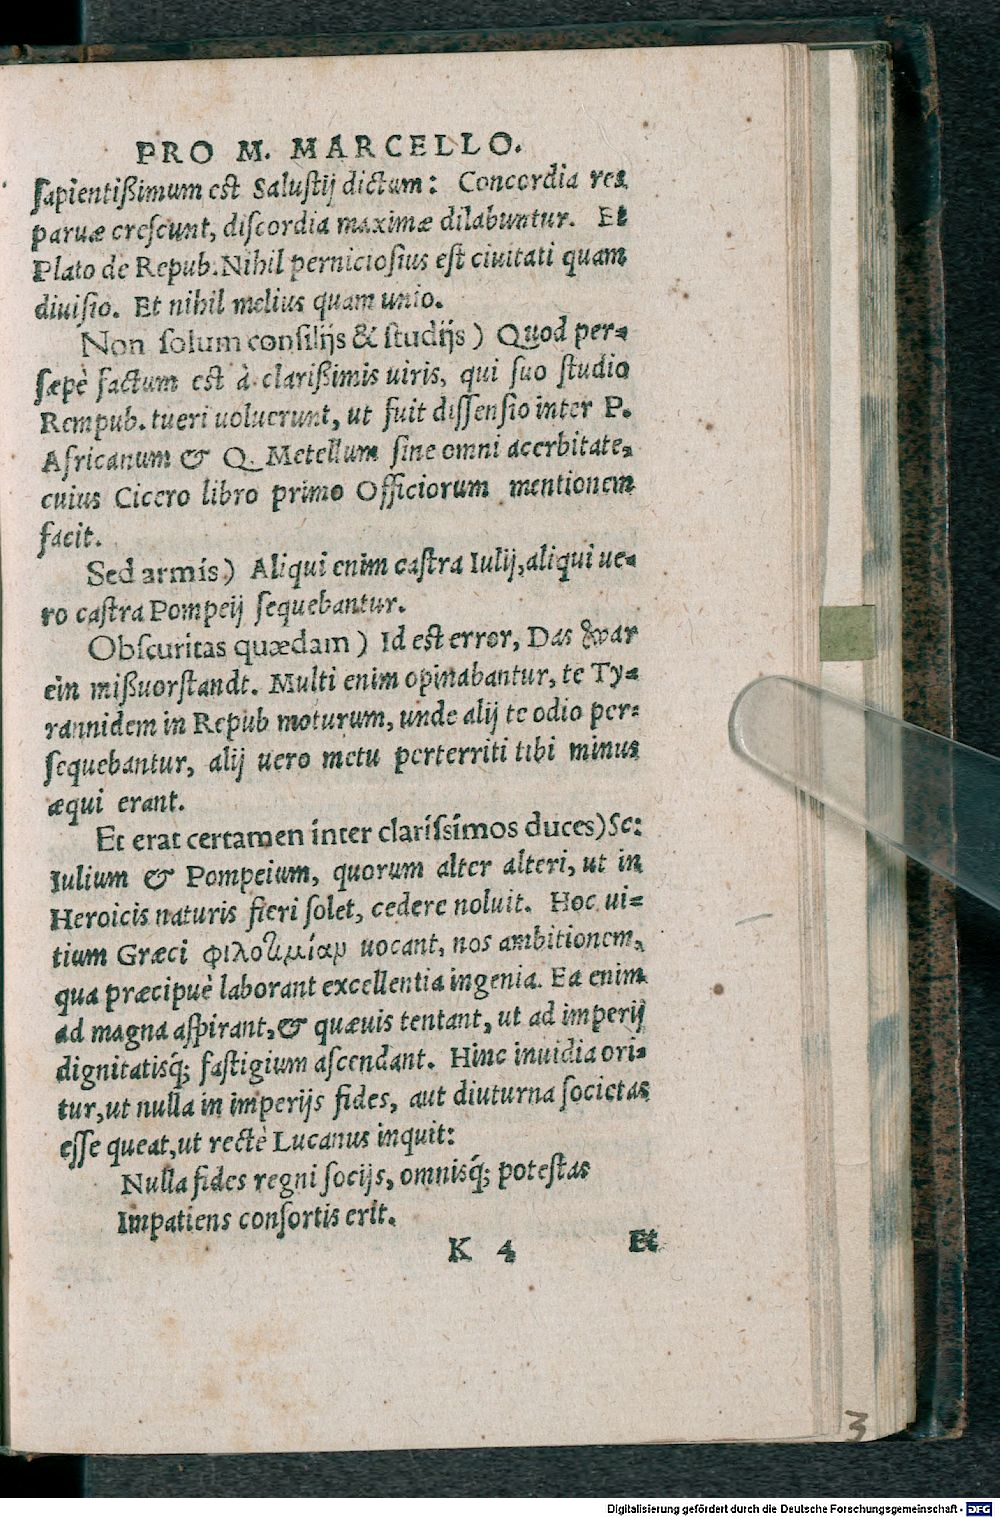 PRO M. MARCELLO.
ſapientißimum est Saluſtij dictum: Concordia res
paruæ creſcunt, diſcordia maximæ dilabuntur. Et
Plato de Repub. Nihil pernicioſius eſt ciuitati quam
diuiſio. Et nihil melius quam unio.
Non ſolum conſilijs & ſtudijs) Quod per-
ſæpè factum est à clarißimis uiris, qui ſuo ſtudio
Rempub. tueri uoluerunt, ut fuit diſſenſio inter P.
Africanum & Q. Metellum ſine omni acerbitate,
cuius Cicero libro primo Officiorum mentionem
facit.
Sed armis) Aliqui enim caſtra Iulij, aliqui ue-
ro caſtra Pompeij ſequebantur.
Obſcuritas quædam) Id eſt error, Das war
ein mißuorſtandt. Multi enim opinabantur, te Ty-
rannidem in Repub moturum, unde alij te odio per-
ſequebantur, alij uero metu perterriti tibi minus
æqui erant.
Et erat certamen inter clariſsimos duces) Sc:
Iulium & Pompeium, quorum alter alteri, ut in
Heroicis naturis fieri ſolet, cedere noluit. Hoc ui-
tium Græci φιλοτιμίαν uocant, nos ambitionem,
qua præcipuè laborant excellentia ingenia. Ea enim
ad magna aſpirant, & quæuis tentant, ut ad imperij
dignitatisq́; faſtigium aſcendant. Hinc inuidia ori-
tur, ut nulla in imperijs fides, aut diuturna ſocietas
eſſe queat, ut rectè Lucanus inquit:
Nulla fides regni ſocijs, omnisq́; poteſtas
Impatiens conſortis erit.
K 4 Et
3
Digitalisierung gefördert durch die Deutsche Forschungsgemeinschaft - DFG